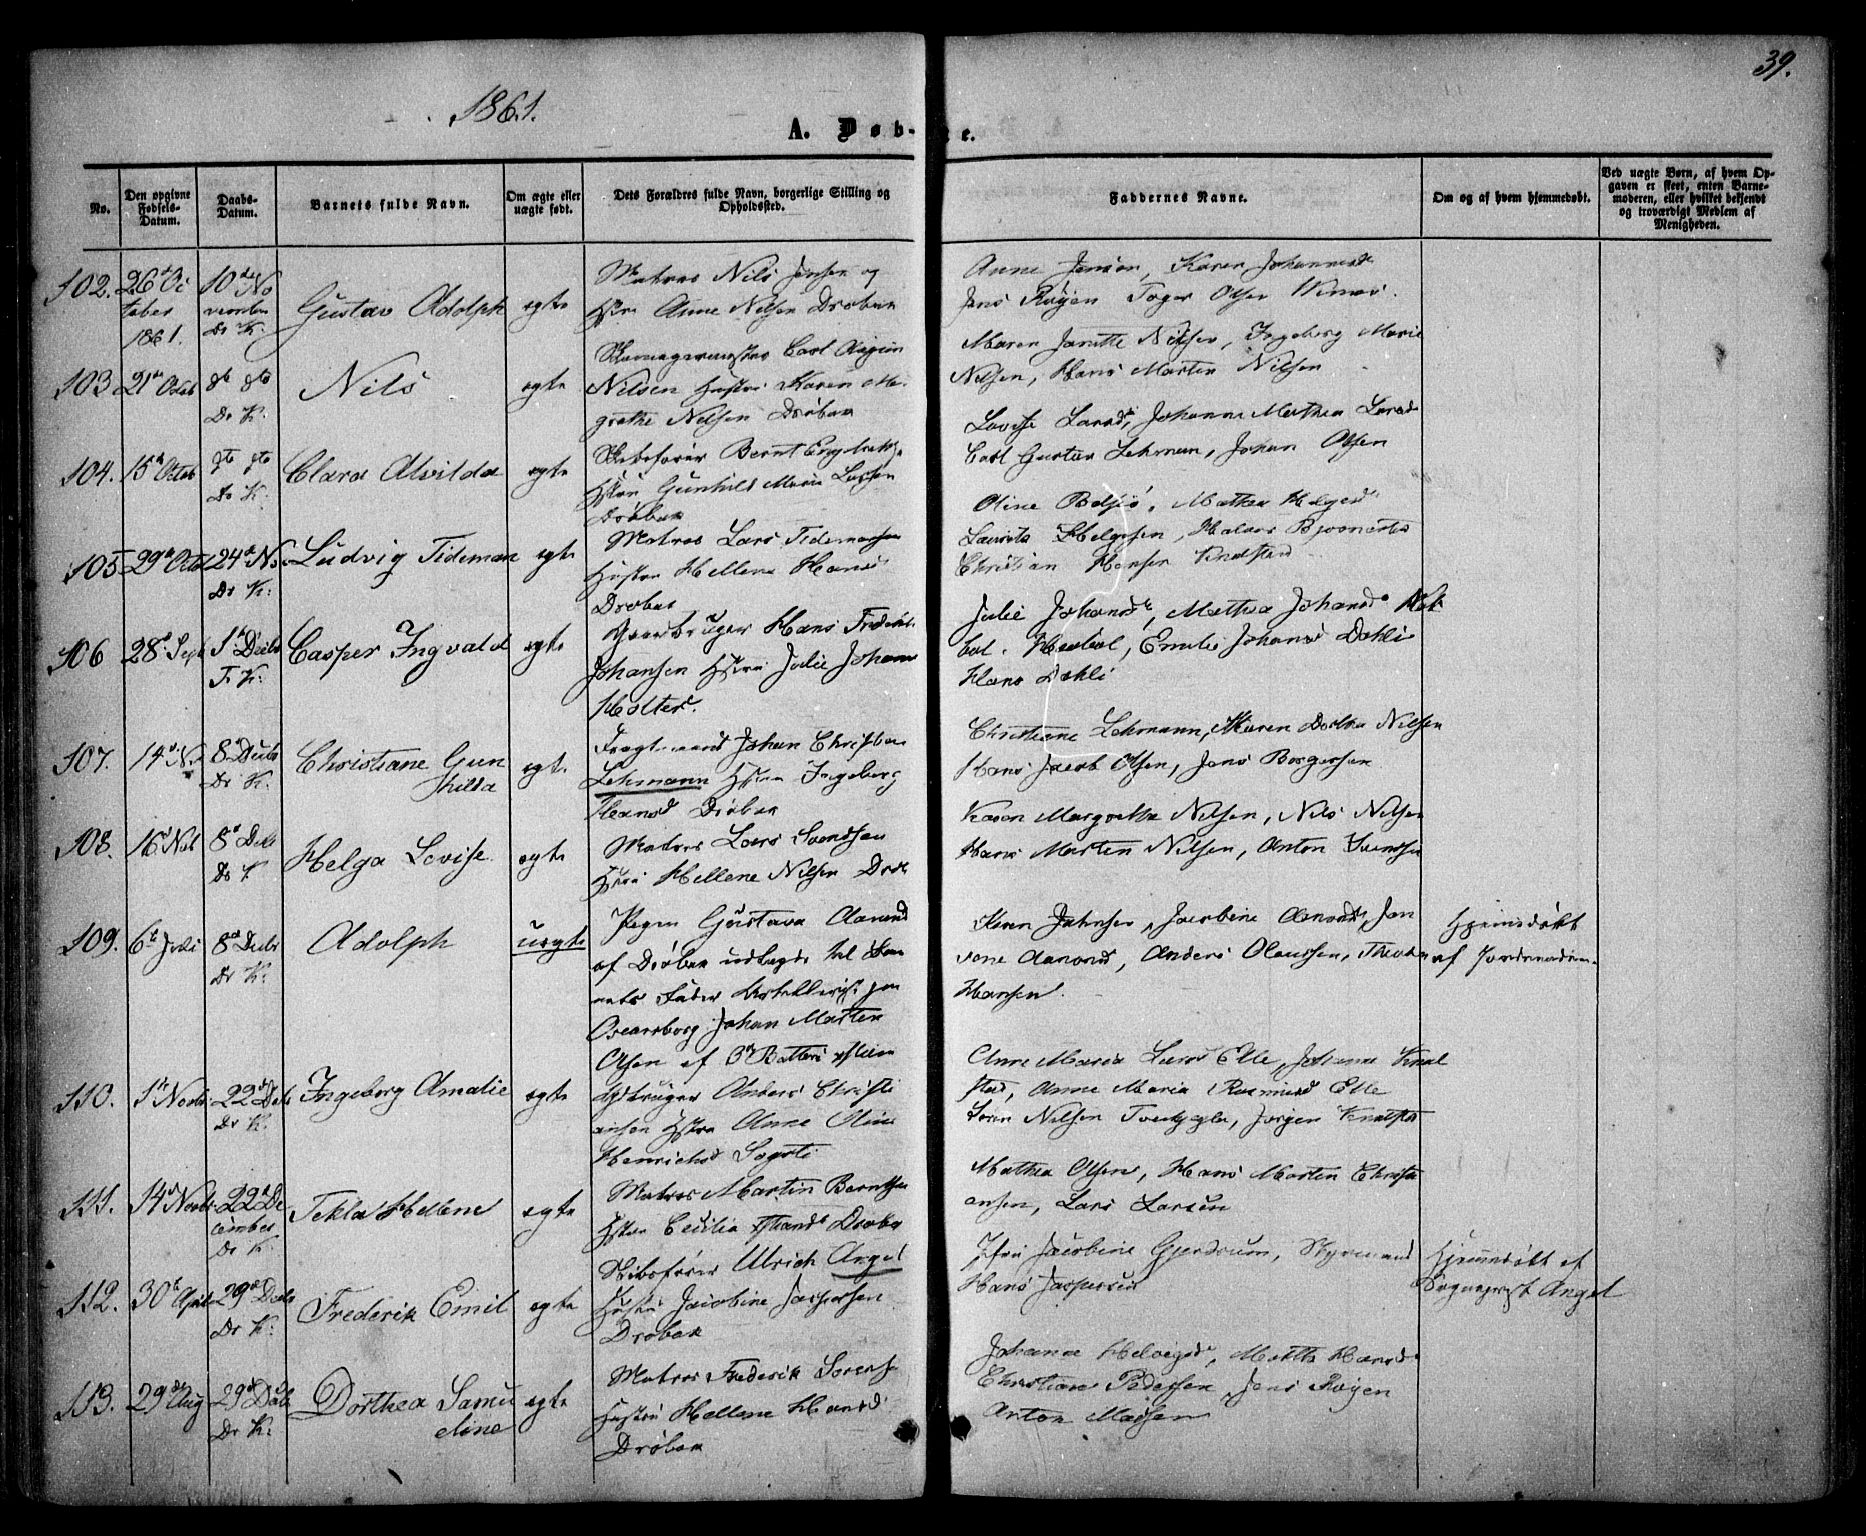 39.
1861.
A. Døb-te.
No.
Den opgivne Fødsels-Datum.
Daabs-Datum.
Barnets fulde Navn.
Om ægte eller uægte født.
Dets Forældres fulde Navn, borgerlige Stilling og Opholdssted.
Faddernes Navne.
Om og af hvem hjemmedøbt.
Ved uægte Børn, af hvem Opgaven er skeet, enten Barnemoderen, eller hvilket bekjendt og troværdigt Medlem af Menigheden.
102.
26d Oc
tober
1861.
10de No
vember
Dr K.
Gustav Adolph
egte
Matros Nils Jensen og
Hstru Anne Nilsen Drøbak
Anne Jensen, Karen Johannesd
Jens Røyen Toger Olsen
103
21d Octob
dto dto
Dr K.
Nils
egte
Carl August
Nilsen Hustru Karen Ma
grethe Nilsen Drøbak
Maren Janette Nilsen, Ingeborg Marie
Nilsen, Hans Marten Nilsen
104.
15d Octob
dto dto
Dr K.
Clara Alvilda
egte
Skibsfører Bernt Engebrets
Hstru Gunhild Marie Larsen
Drøbak
Lovise Larsd, Johanne Mathea Larsd
Carl Gustav Lehman, Johan Olsen
105
29d Octob
24d Nov
Dr K.
Ludvig Tideman
egte
Matros Lars Tidemansen
Hustru Hellene Hansd
Drøbak
Oline, Mathea Helgesd
Laurits Helgesen, Halvor
Christian Hansen Knatsted
106
28d Sept
1d Decbr
F. K.
Casper Ingvald
egte
Gaardbruger Hans Fredrik
Johansen Hstru Julie Johans
Holter.
Julie Johansd, Mathea Johansd Heel
bal. Heelbal, Emilie Johansd Dahli
Hans Dahli
107.
14d Nov
8d Decbr
Dr K.
Christiane Gun
hilda
egte
Fragtmand Johan Christian
Lehmann Hstru Ingeborg
Drøbak
Christiane Lehmann, Maren Dorthea Nilsen
Hans Jacob Olsen, Jens Borgersen
108.
16d Nov
8d Decbr
Dr K
Helga Lovise
egte
Matros Lars Svendsen
Hstru Hellene Nilsen Drøb
Karen Margrethe Nilsen, Nils Nilsen
Hans Marten Nilsen, Anton Svendsen
109.
8d Decbr
Dr K.
Adolph
uegte
Pigen Gustava Aamund
af Drøbak udlagde til Bar
nets Fader Artillerist paa
Oscarsborg Johan Marten
Olsen af
Karen Johnsen, Jacobine Aamunds, Jan
vone Aamund, Anders Olaussen, Theodor
Hansen.
Hjemmedøbt
af Jordemoderen
110.
1d Novbr
22d Decb
Dr K.
Ingeborg Amalie
egte
Anders Christi
ansen Hstru Anne Oline
Henrichsd Sogsti
Anne Maria Larsd Elle, Johanne Knat
sted, Anne Maria Rasmusd Elle
Søren Nilsen Tveitegler, Jørgen Knatsted
111.
14d Novbr
22d De
cember
Dr K.
Tekla Hellene
egte
Matros Martin Berntsen
Hstru Cecilia Hansd Drøbak
Mathea Olsen, Hans Marten Christi
ansen, Lars Larsen
112.
30te April
29d Decbr
Dr K.
Frederik Emil
egte
Skibsfører Ulrich Angel
Hustru Jacobine Jaspersen
Drøbak
Jfru Jacobine Gjerdrum, Styrmand
Hans Jaspersen
Hjemmedøbt af
Sogneprest Angel
113.
29de Aug
29d Decb
Dr K.
Dorthea Samu
eline
egte
Matros Frederik Sørens
Hustru Hellene Hansd
Drøbak
Johanne Helvigsd, Mathea Hansd
Christian Pedersen, Jens Røyen
Anton Madsen